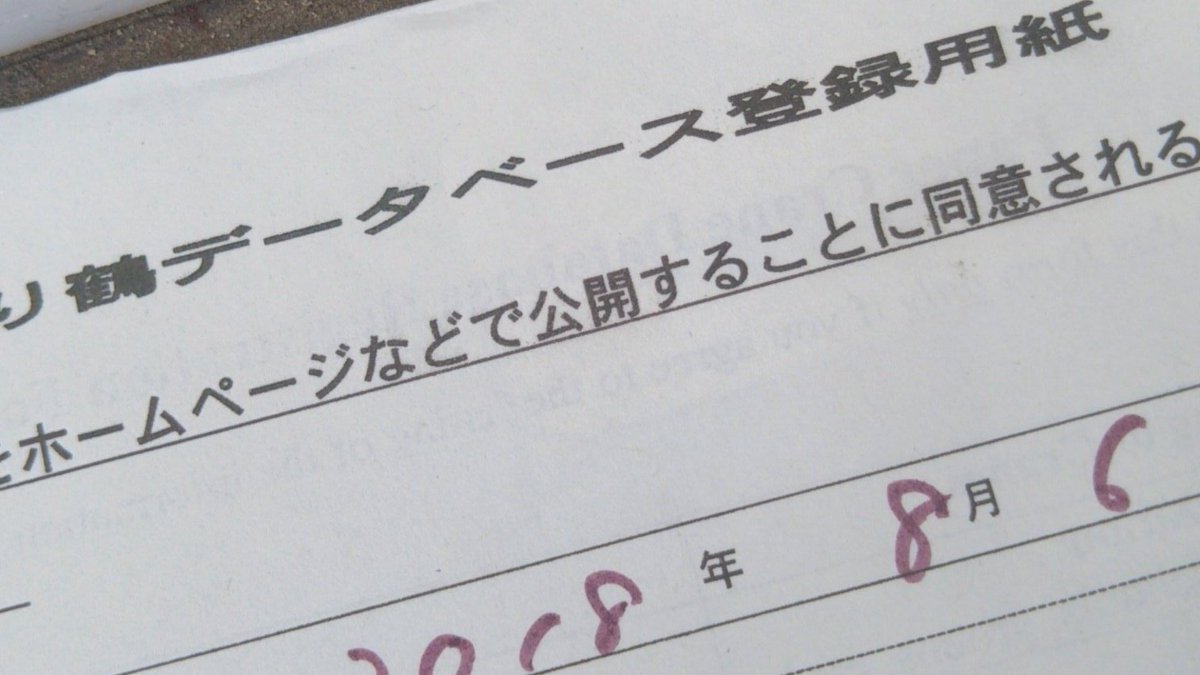 り鶴データベース登録用紙
をホームページなどで公開することに同意される
2018 年 8 月 6